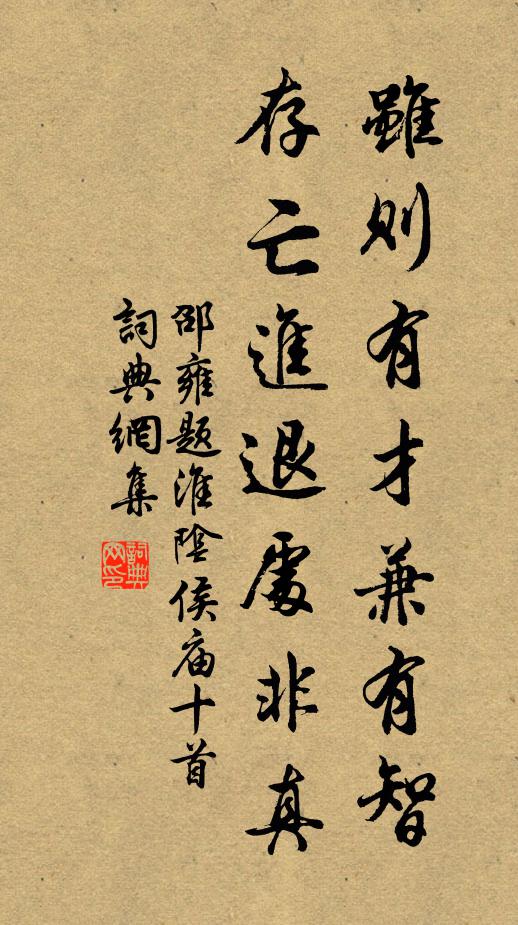 雖則有才兼有智
存亡進退處非真
邵雍題淮陰侯庙十首
詞典網集
詞典
网印